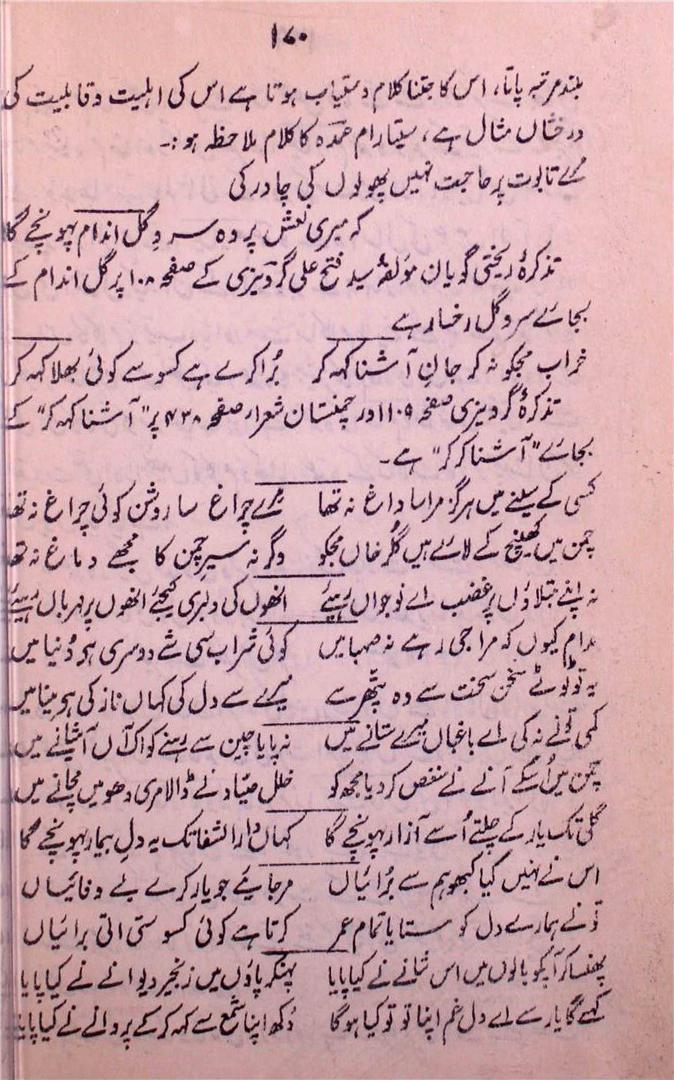 ۱۸۰
بلند مرتبہ پاتا، اس کا جتنا کلام دستیاب ہوتا ہے اس کی اہلیت و قابلیت کی
درخشاں مثال ہے، سیتارام عمدہ کا کلام ملاحظہ ہو :۔
تابوت پر حاجت نہیں پھولوں کی چادر کی
کہ میری نعش پر وہ سرو گل اندام پہونچے گا
تذکرۂ ریختی گویان مولفۂ سید فتح علی گردیزی کے صفحہ ۱۰۸ پر گل اندام کے
بجائے سرو گل رخسار ہے
خراب مجکو نہ کر جان آشنا کہہ کر برا کرے ہے کسو سے کوئی بھلا کہہ کر
تذکرۂ گردیزی صفحہ ۱۱۰۹ور چمنستان شعرار صفحہ ۴۳۰ پر "آشنا کہہ کر" کے
بجائے "آشنا کر کر" ہے۔
کسی کے سینے میں ہرگز مرا سا داغ نہ تھا مرے چراغ سا روشن کوئی چراغ نہ تھا
چمن میں کھینچ کے لائے ہیں گلرخاں مجکو وگرنہ سیر چمن کا مجھے دماغ نہ تھا
نہ اپنے مبتلاؤں پر غضب اے نوجواں رہیئے انھوں کی دلبری کیجئے انھوں پر مہرباں رہیئے
مدام کیوں کہ مرا جی رہے نہ صہبا میں کوئی شراب سی شے دوسری ہی دنیا میں
یہ تو ٹوٹے سخن سخت سے وہ پتھر سے میرے سے دل کی کہاں ناز کی ہی مینا میں
کمی تونے نہ کی اے باغباں میرے ستانے میں نہ پایا چین سے رہنے کو اک آں آشیانے میں
چمن میں اسکے آنے نے منغص کر دیا مجھ کو خلل صیاد نے ڈالا مری دھومیں مچانے میں
گلی تک یار کے چلتے اسے آزار پہونچے گا کہاں دار الشفا تک یہ دل بیمار پہونچے گا
اس نے نہیں کیا کبھو ہم سے برائیاں مر جایئے جو یار کرے بے وفائیاں
تونے ہمارے دل کو ستایا تمام عمر کرتا ہے کوئی کسو ستی اتی برائیاں
پھنسا کر آپکو بالوں میں اس شانے نے کیا پایا پہنکر پاؤں میں زنجیر دیوانے نے کیا پایا
کہے گا یار سے اے دل غم اپنا تو تو کیا ہوگا دکھ اپنا شمع سے کہہ کر کے پروانے نے کیا پایا